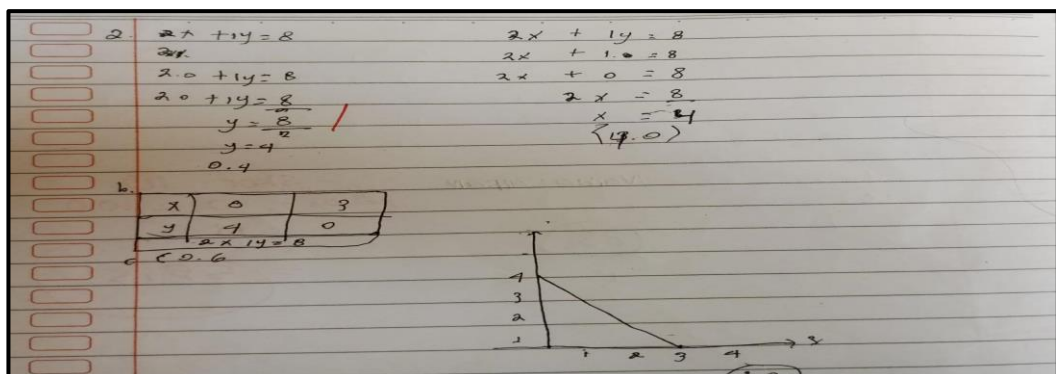 2. 2x + 1y = 8
2.0 + 1y = 8
20 + 1y = 8
y = 8/2
y = 4
0.4
2x + 1y = 8
2x + 1.0 = 8
2x + 0 = 8
2x = 8
x = 4
(4.0)
b.
x 0 3
y 4 0
2x 1y = 8
c (0.6
4
3
2
1
1 2 3 4